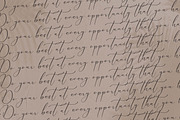 Do your best at every opportunity that
Do your best at every opportunity that you
Do your best at every opportunity that you
Do your best at every opportunity that you
Do your best at every opportunity that you
Do your best at every opportunity that you
Do your best at every opportunity that you
Do your best at every opportunity that you